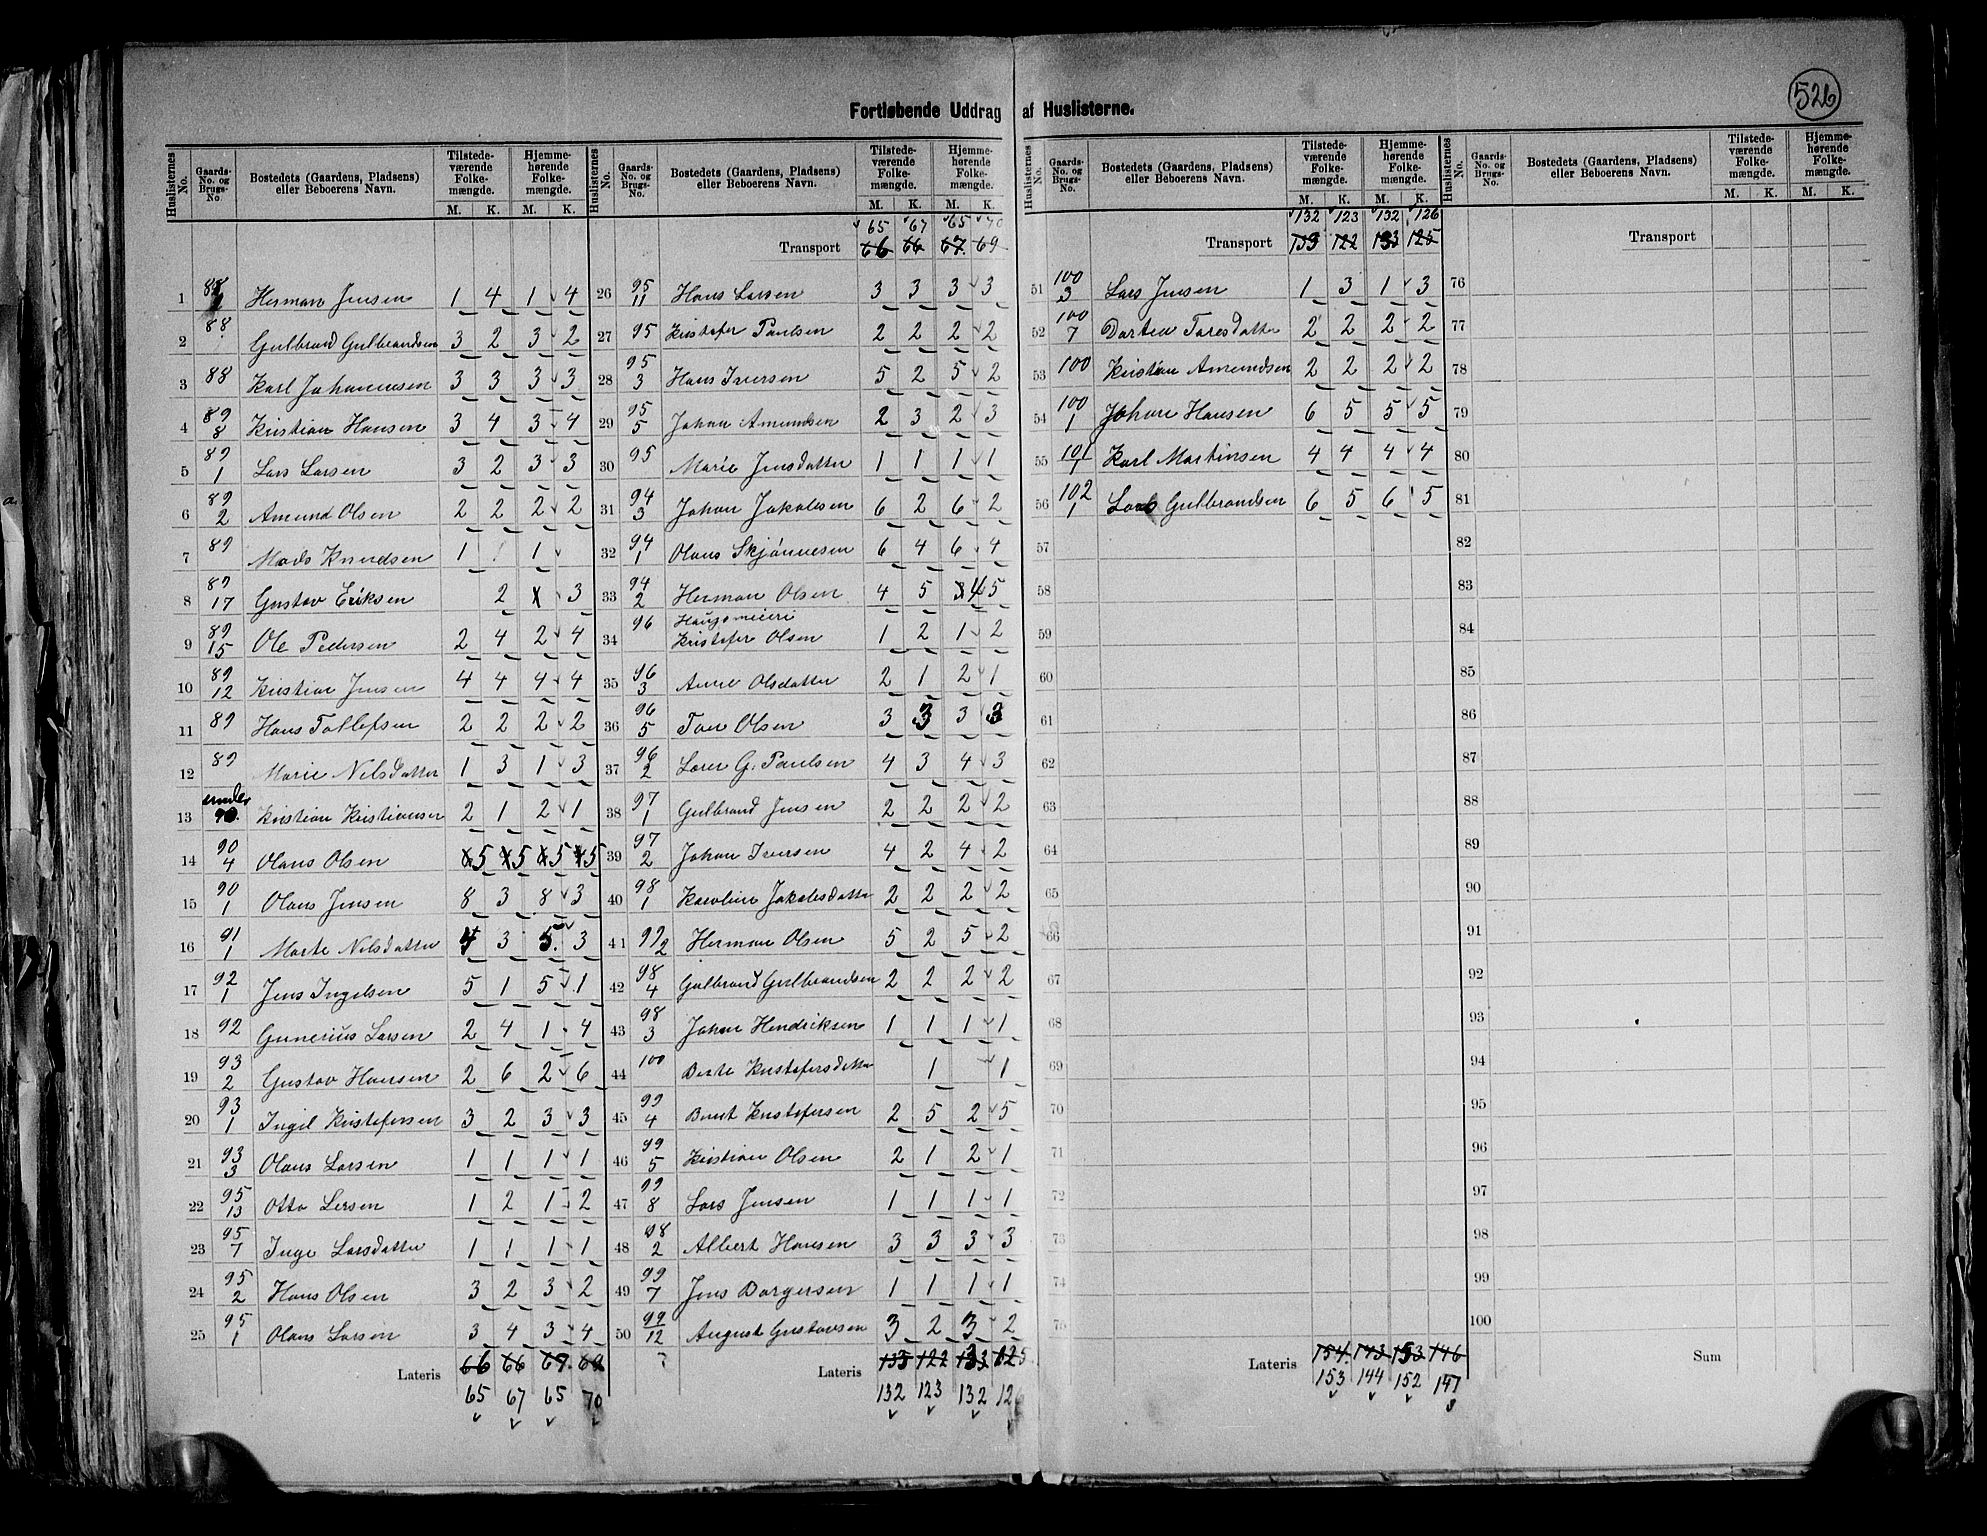 526
Fortløbende Uddrag af Huslisterne.
Huslisternes No. Gaards-No. og Brugs-No. Bostedets (Gaardens, Pladsens) eller Beboerens Navn. Tilstedeværende Folkemængde. M. K. Hjemmehørende Folkemængde. M. K.
1 88 Herman Jensen 1 4 1 4
2 88 Gulbrand Gulbrandsen 3 2 3 2
3 88 Karl Johannesen 3 3 3 3
4 89/8 Kristian Hansen 3 4 3 4
5 89/1 Lars Larsen 3 2 3 3
6 89/2 Amund Olsen 2 2 2 2
7 89 Mads Knudsen 1 1
8 89/17 Gustav Eriksen 2 3
9 89/15 Ole Pedersen 2 4 2 4
10 89/12 Kristian Jensen 4 4 4 4
11 89 Hans Tollefsen 2 2 2 2
12 89 Marie Nilsdatter 1 3 1 3
13 under 90. Kristian Kristiansen 2 1 2 1
14 90/4 Olaus Olsen 5 5 5 5
15 90/1 Olaus Jensen 8 3 8 3
16 91/1 Marte Nilsdatter 4 3 5. 3
17 92/1 Jens Ingelsen 5 1 5 1
18 92 Gunerius Larsen 2 4 1 4
19 93/2 Gustav Hansen 2 6 2 6
20 93/1 Ingil Kristofersen 3 2 3 3
21 93/3 Olaus Larsen 1 1 1 1
22 95/13 Otto Larsen 1 2 1 2
23 95/7 Inge Larsdatter 1 1 1 1
24 95/2 Hans Olsen 3 2 3 2
25 95/1 Olaus Larsen 3 4 3 4
Lateris 66 66 67. 69
65 67 65 70
Huslisternes No. Gaards-No. og Brugs-No. Bostedets (Gaardens, Pladsens) eller Beboerens Navn. Tilstedeværende Folkemængde. M. K. Hjemmehørende Folkemængde. M. K.
65 67 65 70
Transport 66 66 67. 69
26 95/11 Hans Larsen 3 3 3 3
27 95 Kristofer Paulsen 2 2 2 2
28 95/3 Hans Iversen 5 2 5 2
29 95/5 Johan Amundsen 2 3 2 3
30 95 Marie Jensdatter 1 1 1 1
31 94/3 Johan Jakobsen 6 2 6 2
32 94/1 Olaus Skjønnesen 6 4 6 4
33 94/2 Herman Olsen 4 5 4 5
34 96 Haugsmeieri
Kristofer Olsen 1 2 1 2
35 96/3 Anne Olsdatter 2 1 2 1
36 96/5 Tore Olsen 3 3 3 3
37 96/2 Lærer G. Paulsen 4 3 4 3
38 97/1 Gulbrand Jensen 2 2 2 2
39 97/2 Johan Iversen 4 2 4 2
40 98/1 Karoline Jakobsdatter 2 2 2 2
41 99/2 Herman Olsen 5 2 5 2
42 98/4 Gulbrand Gulbrandsen 2 2 2 2
43 98/3 Johan Hendriksen 1 1 1 1
44 100 Berte Kristofersdatter 1 1
45 99/4 Bernt Kristofersen 2 5 2 5
46 99/5 Kristian Olsen 2 1 2 1
47 99/8 Lars Jensen 1 1 1 1
48 98/2 Albert Hansen 3 3 3 3
49 99/7 Jens Borgersen 1 1 1 1
50 99/12 August Gustavsen 3 2 3 2
Lateris 133 122 133 125
132 123 132 126
Huslisternes No. Gaards-No. og Brugs-No. Bostedets (Gaardens, Pladsens) eller Beboerens Navn. Tilstedeværende Folkemængde. M. K. Hjemmehørende Folkemængde. M. K.
132 123 132 126
Transport 133 122 133 125
51 100/3 Lars Jensen 1 3 1 3
52 100/7 Dortea Toresdatter 2 2 2 2
53 100 Kristian Amundsen 2 2 2 2
54 100/1 Johan Hansen 6 5 5 5
55 101/1 Karl Martinsen 4 4 4 4
56 102/1 Lars Gulbrandsen 6 5 6 5
57
58
59
60
61
62
63
64
65
66
67
68
69
70
71
72
73
74
75
Lateris 154. 143 153 146
153 144 152 147
Huslisternes No. Gaards-No. og Brugs-No. Bostedets (Gaardens, Pladsens) eller Beboerens Navn. Tilstedeværende Folkemængde. M. K. Hjemmehørende Folkemængde. M. K.
Transport
76
77
78
79
80
81
82
83
84
85
86
87
88
89
90
91
92
93
94
95
96
97
98
99
100
Sum